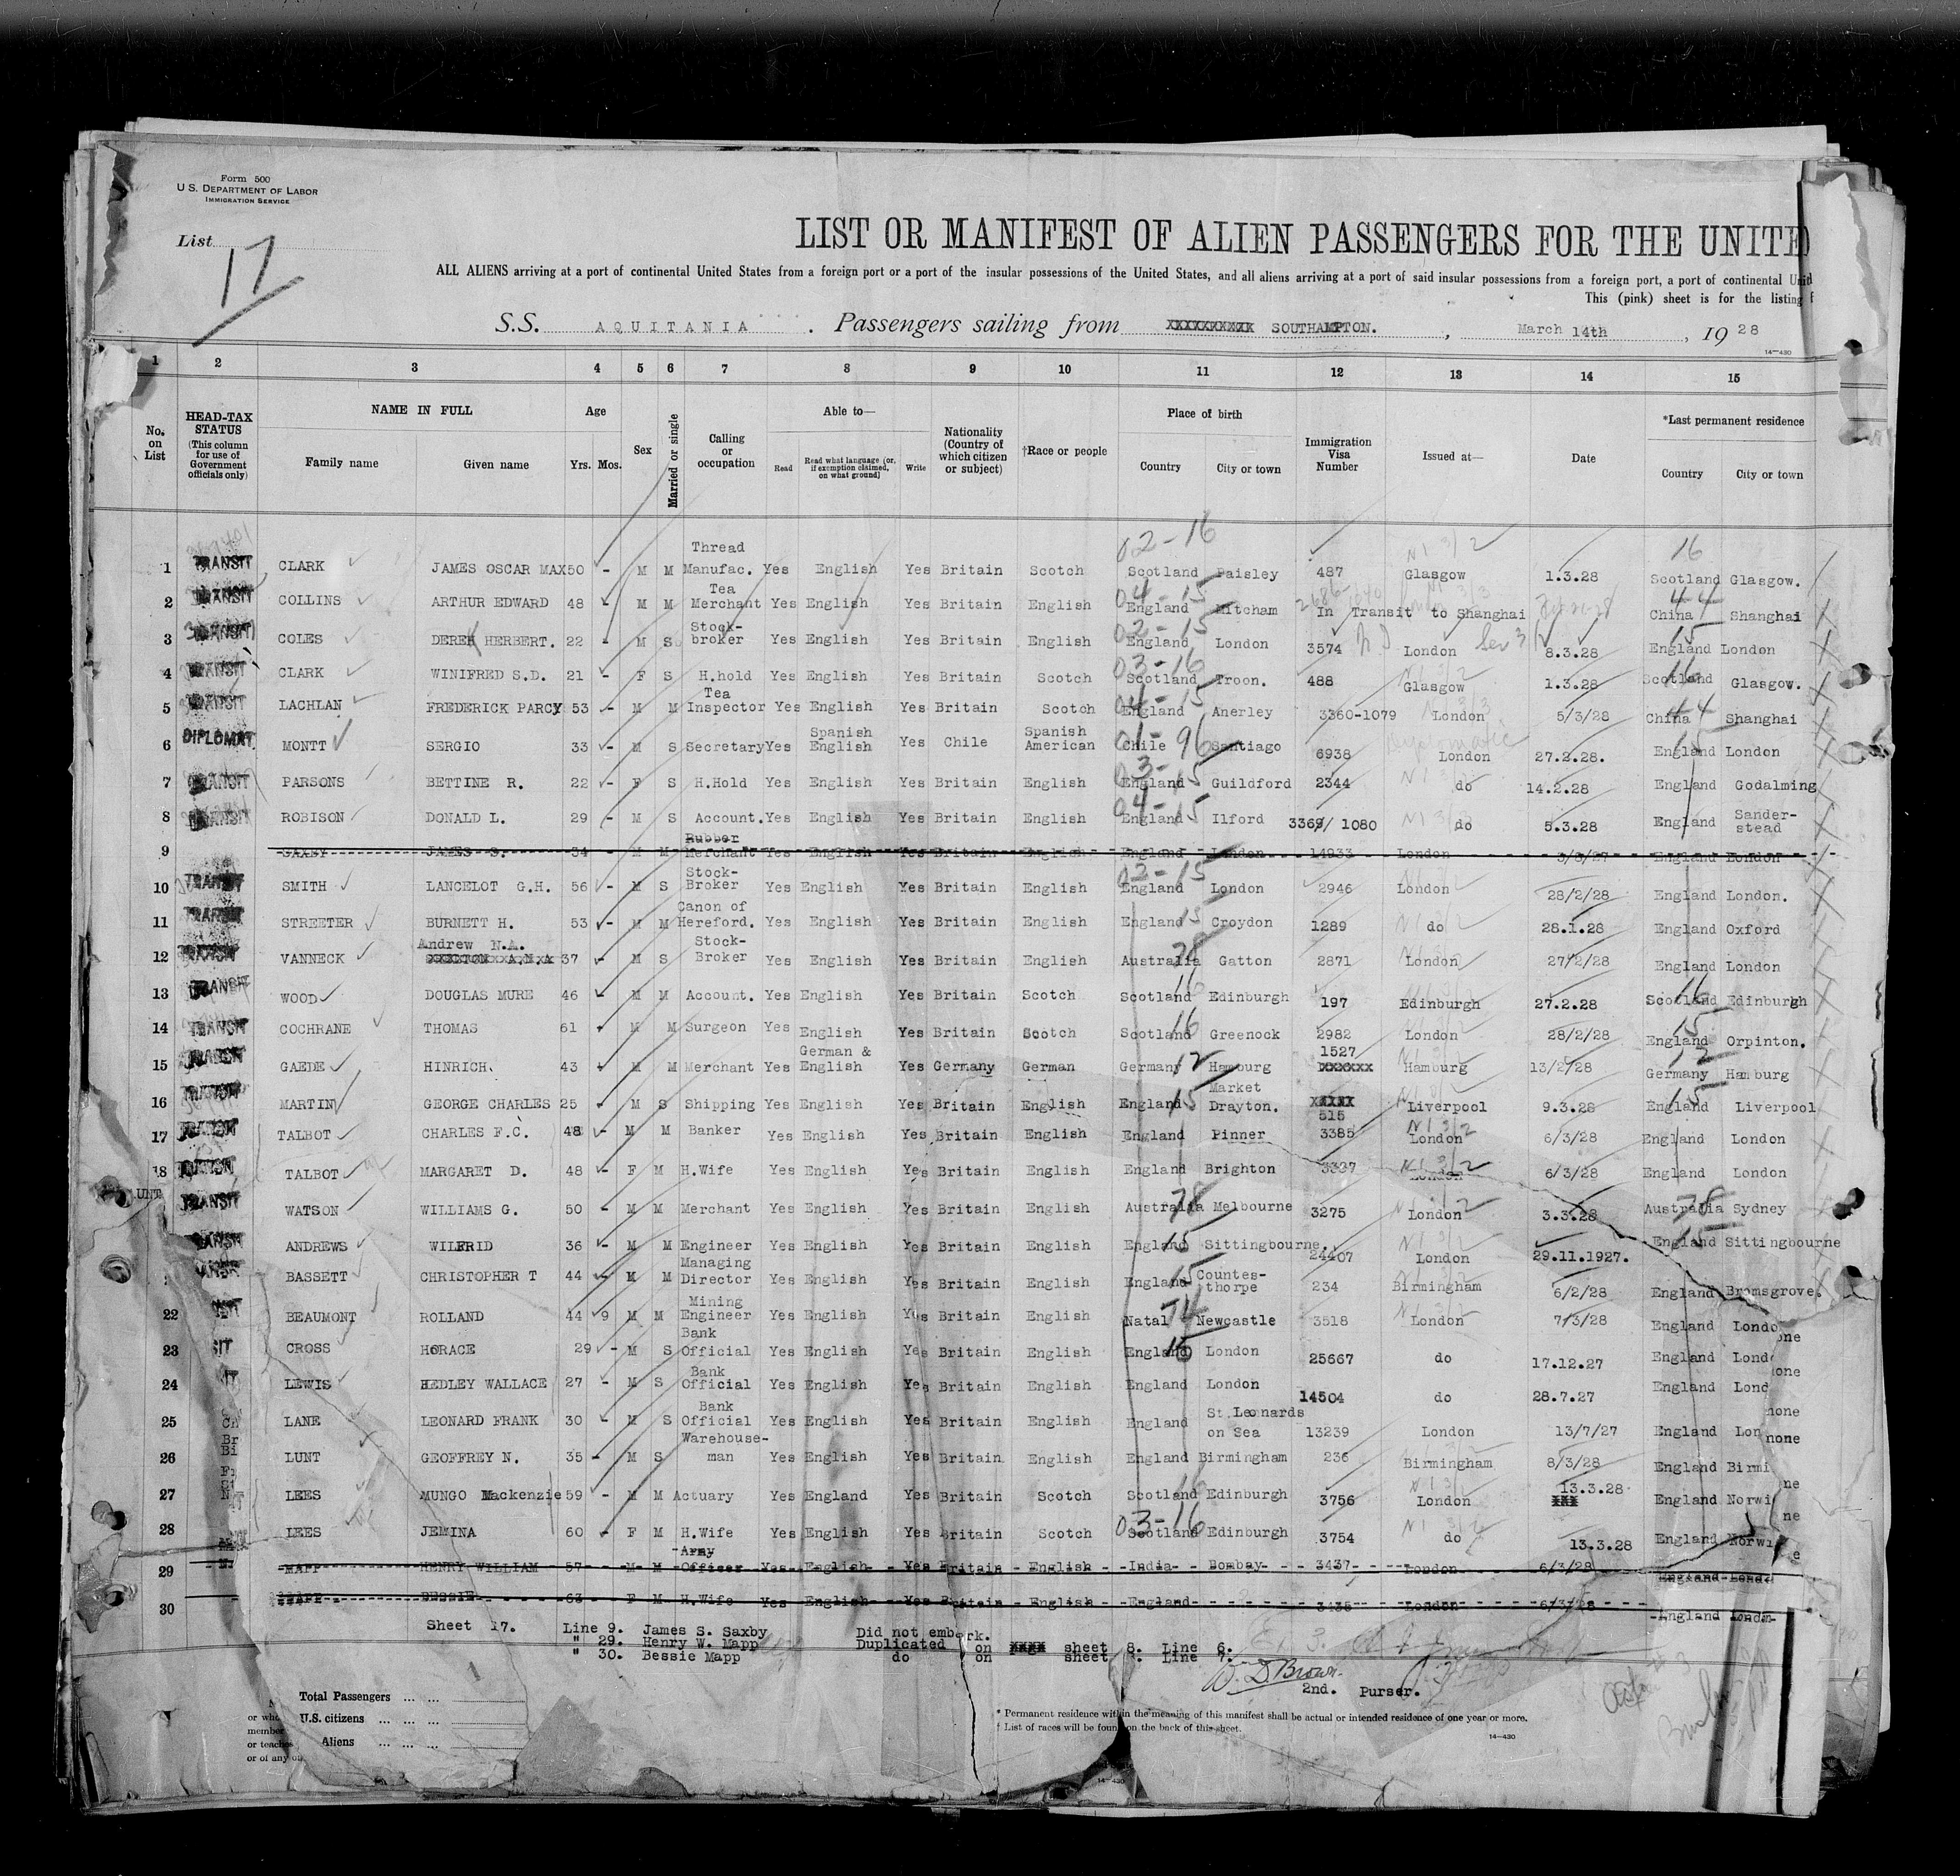 Form 500
U.S. DEPARTMENT OF LABOR
IMMIGRATION SERVICE
List 17
LIST OR MANIFEST OF ALIEN PASSENGERS FOR THE UNITE
ALL ALIENS arriving at a port of continental United States from a foreign port or a port of the insular possessions of the United States, and all aliens arriving at a port of said insular possessions from a foreign port, a port of continental Unit
This (pink) sheet is for the listing
S.S. AQUITANIA. Passengers sailing from XXXXXXXXXX SOUTHAMPTON., March 14th, 1928
14—430
1 2 3 4 5 6 7 8 9 10 11 12 13 14 15
No. on List
HEAD-TAX STATUS (This column for use of Government officials only)
NAME IN FULL
Family name Given name
Age
Yrs. Mos.
Sex
Married or single
Calling or occupation
Able to—
Read Read what language (or, if exemption claimed, on what ground) Write
Nationality (Country of which citizen or subject)
†Race or people
Place of birth
Country City or town
Immigration Visa Number
Issued at—
Date
*Last permanent residence
Country City or town
02-16 16
1 TRANSIT CLARK JAMES OSCAR MAX 50 - M M Thread Manufac. Yes English Yes Britain Scotch Scotland Paisley 487 Glasgow 1.3.28 Scotland Glasgow.
2 TRANSIT COLLINS ARTHUR EDWARD 48 - M M Tea Merchant Yes English Yes Britain English 04-15 England Mitcham In Transit to Shanghai 44 China Shanghai
3 TRANSIT COLES DEREK HERBERT. 22 - M S Stock-broker Yes English Yes Britain English 02-15 England London 3574 London 8.3.28 15 England London
4 TRANSIT CLARK WINIFRED S.D. 21 - F S H.hold Yes English Yes Britain Scotch 03-16 Scotland Troon. 488 Glasgow 1.3.28 16 Scotland Glasgow.
5 TRANSIT LACHLAN FREDERICK PARCY 53 - M M Tea Inspector Yes English Yes Britain Scotch 04-15 England Anerley 3360-1079 London 5/3/28 44 China Shanghai
6 DIPLOMAT. MONTT SERGIO 33 - M S Secretary Yes Spanish English Yes Chile Spanish American 01-96 Chile Santiago 6938 Diplomatic London 27.2.28. 15 England London
7 TRANSIT PARSONS BETTINE R. 22 - F S H.Hold Yes English Yes Britain English 03-15 England Guildford 2344 do 14.2.28 England Godalming
8 TRANSIT ROBISON DONALD L. 29 - M S Account. Yes English Yes Britain English 04-15 England Ilford 3369/ 1080 do 5.3.28 England Sander-stead
9 SAXBY JAMES S. 34 M M Rubber Merchant Yes English Yes Britain English England London 14933 London England London
10 TRANSIT SMITH LANCELOT G.H. 56 - M S Stock-Broker Yes English Yes Britain English 02-15 England London 2946 London 28/2/28 England London.
11 TRANSIT STREETER BURNETT H. 53 - M M Canon of Hereford. Yes English Yes Britain English England 15 Croydon 1289 do 28.1.28 England Oxford
12 TRANSIT VANNECK Andrew N.A. 37 - M S Stock-Broker Yes English Yes Britain English Australia 78 Gatton 2871 London 27/2/28 England London
13 TRANSIT WOOD DOUGLAS MURE 46 - M M Account. Yes English Yes Britain Scotch Scotland 16 Edinburgh 197 Edinburgh 27.2.28 16 Scotland Edinburgh
14 TRANSIT COCHRANE THOMAS 61 - M M Surgeon Yes English Yes Britain Scotch Scotland 16 Greenock 2982 London 28/2/28 15 England Orpinton.
15 TRANSIT GAEDE HINRICH. 43 - M M Merchant Yes German & English Yes Germany German Germany 12 Hamburg 1527 XXXXXXX Hamburg 13/2/28 12 Germany Hamburg
16 TRANSIT MARTIN GEORGE CHARLES 25 - M S Shipping Yes English Yes Britain English England 15 Market Drayton. XXXXX 515 Liverpool 9.3.28 15 England Liverpool
17 TRANSIT TALBOT CHARLES F.C. 48 - M M Banker Yes English Yes Britain English England Pinner 3385 London 6/3/28 England London
18 TRANSIT TALBOT MARGARET D. 48 - F M H.Wife Yes English Yes Britain English England Brighton 3387 London 6/3/28 England London
UNT
TRANSIT WATSON WILLIAMS G. 50 - M M Merchant Yes English Yes Britain English Australia 78 Melbourne 3275 London 3.3.28 78 Australia Sydney
ANDREWS WILFRID 36 - M M Engineer Yes English Yes Britain English England 15 Sittingbourne 24407 London 29.11.1927. 15 England Sittingbourne
BASSETT CHRISTOPHER T 44 - M M Managing Director Yes English Yes Britain English England 15 Countes-thorpe 234 Birmingham 6/2/28 England Bromsgrove.
22 BEAUMONT ROLLAND 44 9 M M Mining Engineer Yes English Yes Britain English Natal 74 Newcastle 3518 London 7/3/28 England Londo
23 SIT CROSS HORACE 29 - M S Bank Official Yes English Yes Britain English England 15 London 25667 do 17.12.27 England Lond one
24 IT LEWIS HEDLEY WALLACE 27 - M S Bank Official Yes English Yes Britain English England London 14504 do 28.7.27 England Lond one
25 LANE LEONARD FRANK 30 - M S Bank Official Yes English Yes Britain English England St.Leonards on Sea 13239 London 13/7/27 England Lon none
26 LUNT GEOFFREY N. 35 - M S Warehouse-man Yes English Yes Britain English England Birmingham 236 Birmingham 8/3/28 England Birmi none
27 LEES MUNGO Mackenzie 59 - M M Actuary Yes England Yes Britain Scotch Scotland 16 Edinburgh 3756 London 13.3.28 XXX England Norwi ne
28 LEES JEMINA 60 - F M H.Wife Yes English Yes Britain Scotch 03-16 Scotland Edinburgh 3754 do 13.3.28 England Norwi ne
29 MAPP HENRY WILLIAM 57 M M Army Officer Yes English Yes Britain English India Bombay 3437 London 6/3/28 England Lond
30 MAPP BESSIE 63 F M H.Wife Yes English Yes Britain English England 3435 London 6/3/28 England London
Sheet 17. Line 9. James S. Saxby Did not embark.
" 29. Henry W. Mapp Duplicated on XXXX sheet 8. Line 6.
" 30. Bessie Mapp do on sheet Line 7.
B. D. Brown.
2nd. Purser.
Total Passengers ... ...
U.S. citizens ... ... ...
Aliens ... ... ...
or who
member
or teaches
or of any o
* Permanent residence within the meaning of this manifest shall be actual or intended residence of one year or more.
† List of races will be found on the back of this sheet.
14—430
14—430